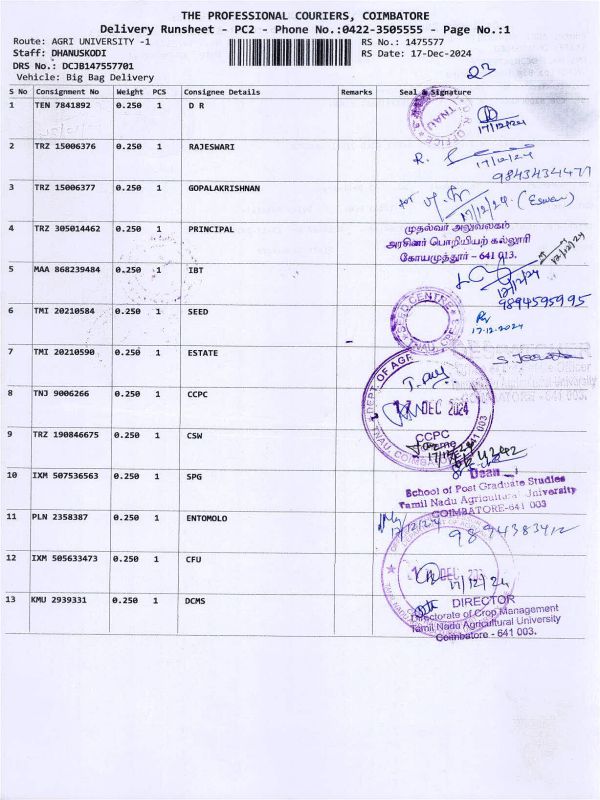 THE PROFESSIONAL COURIERS, COIMBATORE
Delivery Runsheet - PC2 - Phone No.:0422-3505555 - Page No.:1
Route: AGRI UNIVERSITY -1 RS No.: 1475577
Staff: DHANUSKODI RS Date: 17-Dec-2024
DRS No.: DCJB147557701
Vehicle: Big Bag Delivery
23
S No Consignment No Weight PCS Consignee Details Remarks Seal & Signature
1 TEN 7841892 0.250 1 D R
TNAU
17/12/24
2 TRZ 15006376 0.250 1 RAJESWARI
R.
17/12/24
9843434477
3 TRZ 15006377 0.250 1 GOPALAKRISHNAN
for
17/12/24. (Eswari)
4 TRZ 305014462 0.250 1 PRINCIPAL
முதல்வர் அலுவலகம்
அரசினர் பொறியியற் கல்லூரி
கோயமுத்தூர் - 641 013.
17/12/24
5 MAA 868239484 0.250 1 IBT
17/12/24
9894595995
6 TMI 20210584 0.250 1 SEED
SEED CENTRE
TNAU, CBE
17.12.2024
7 TMI 20210590 0.250 1 ESTATE
S
8 TNJ 9006266 0.250 1 CCPC
DEPT OF AGR
17 DEC 2024
TNAU, COIMBATORE-641 003
CCPC
9 TRZ 190846675 0.250 1 CSW
17/12/24
10 IXM 507536563 0.250 1 SPG
Dean
School of Post Graduate Studies
Tamil Nadu Agricultural University
COIMBATORE-641 003
11 PLN 2358387 0.250 1 ENTOMOLO
17/12/24
9894383412
12 IXM 505633473 0.250 1 CFU
DEC
17/12/24
13 KMU 2939331 0.250 1 DCMS
DIRECTOR
Directorate of Crop Management
Tamil Nadu Agricultural University
Coimbatore - 641 003.